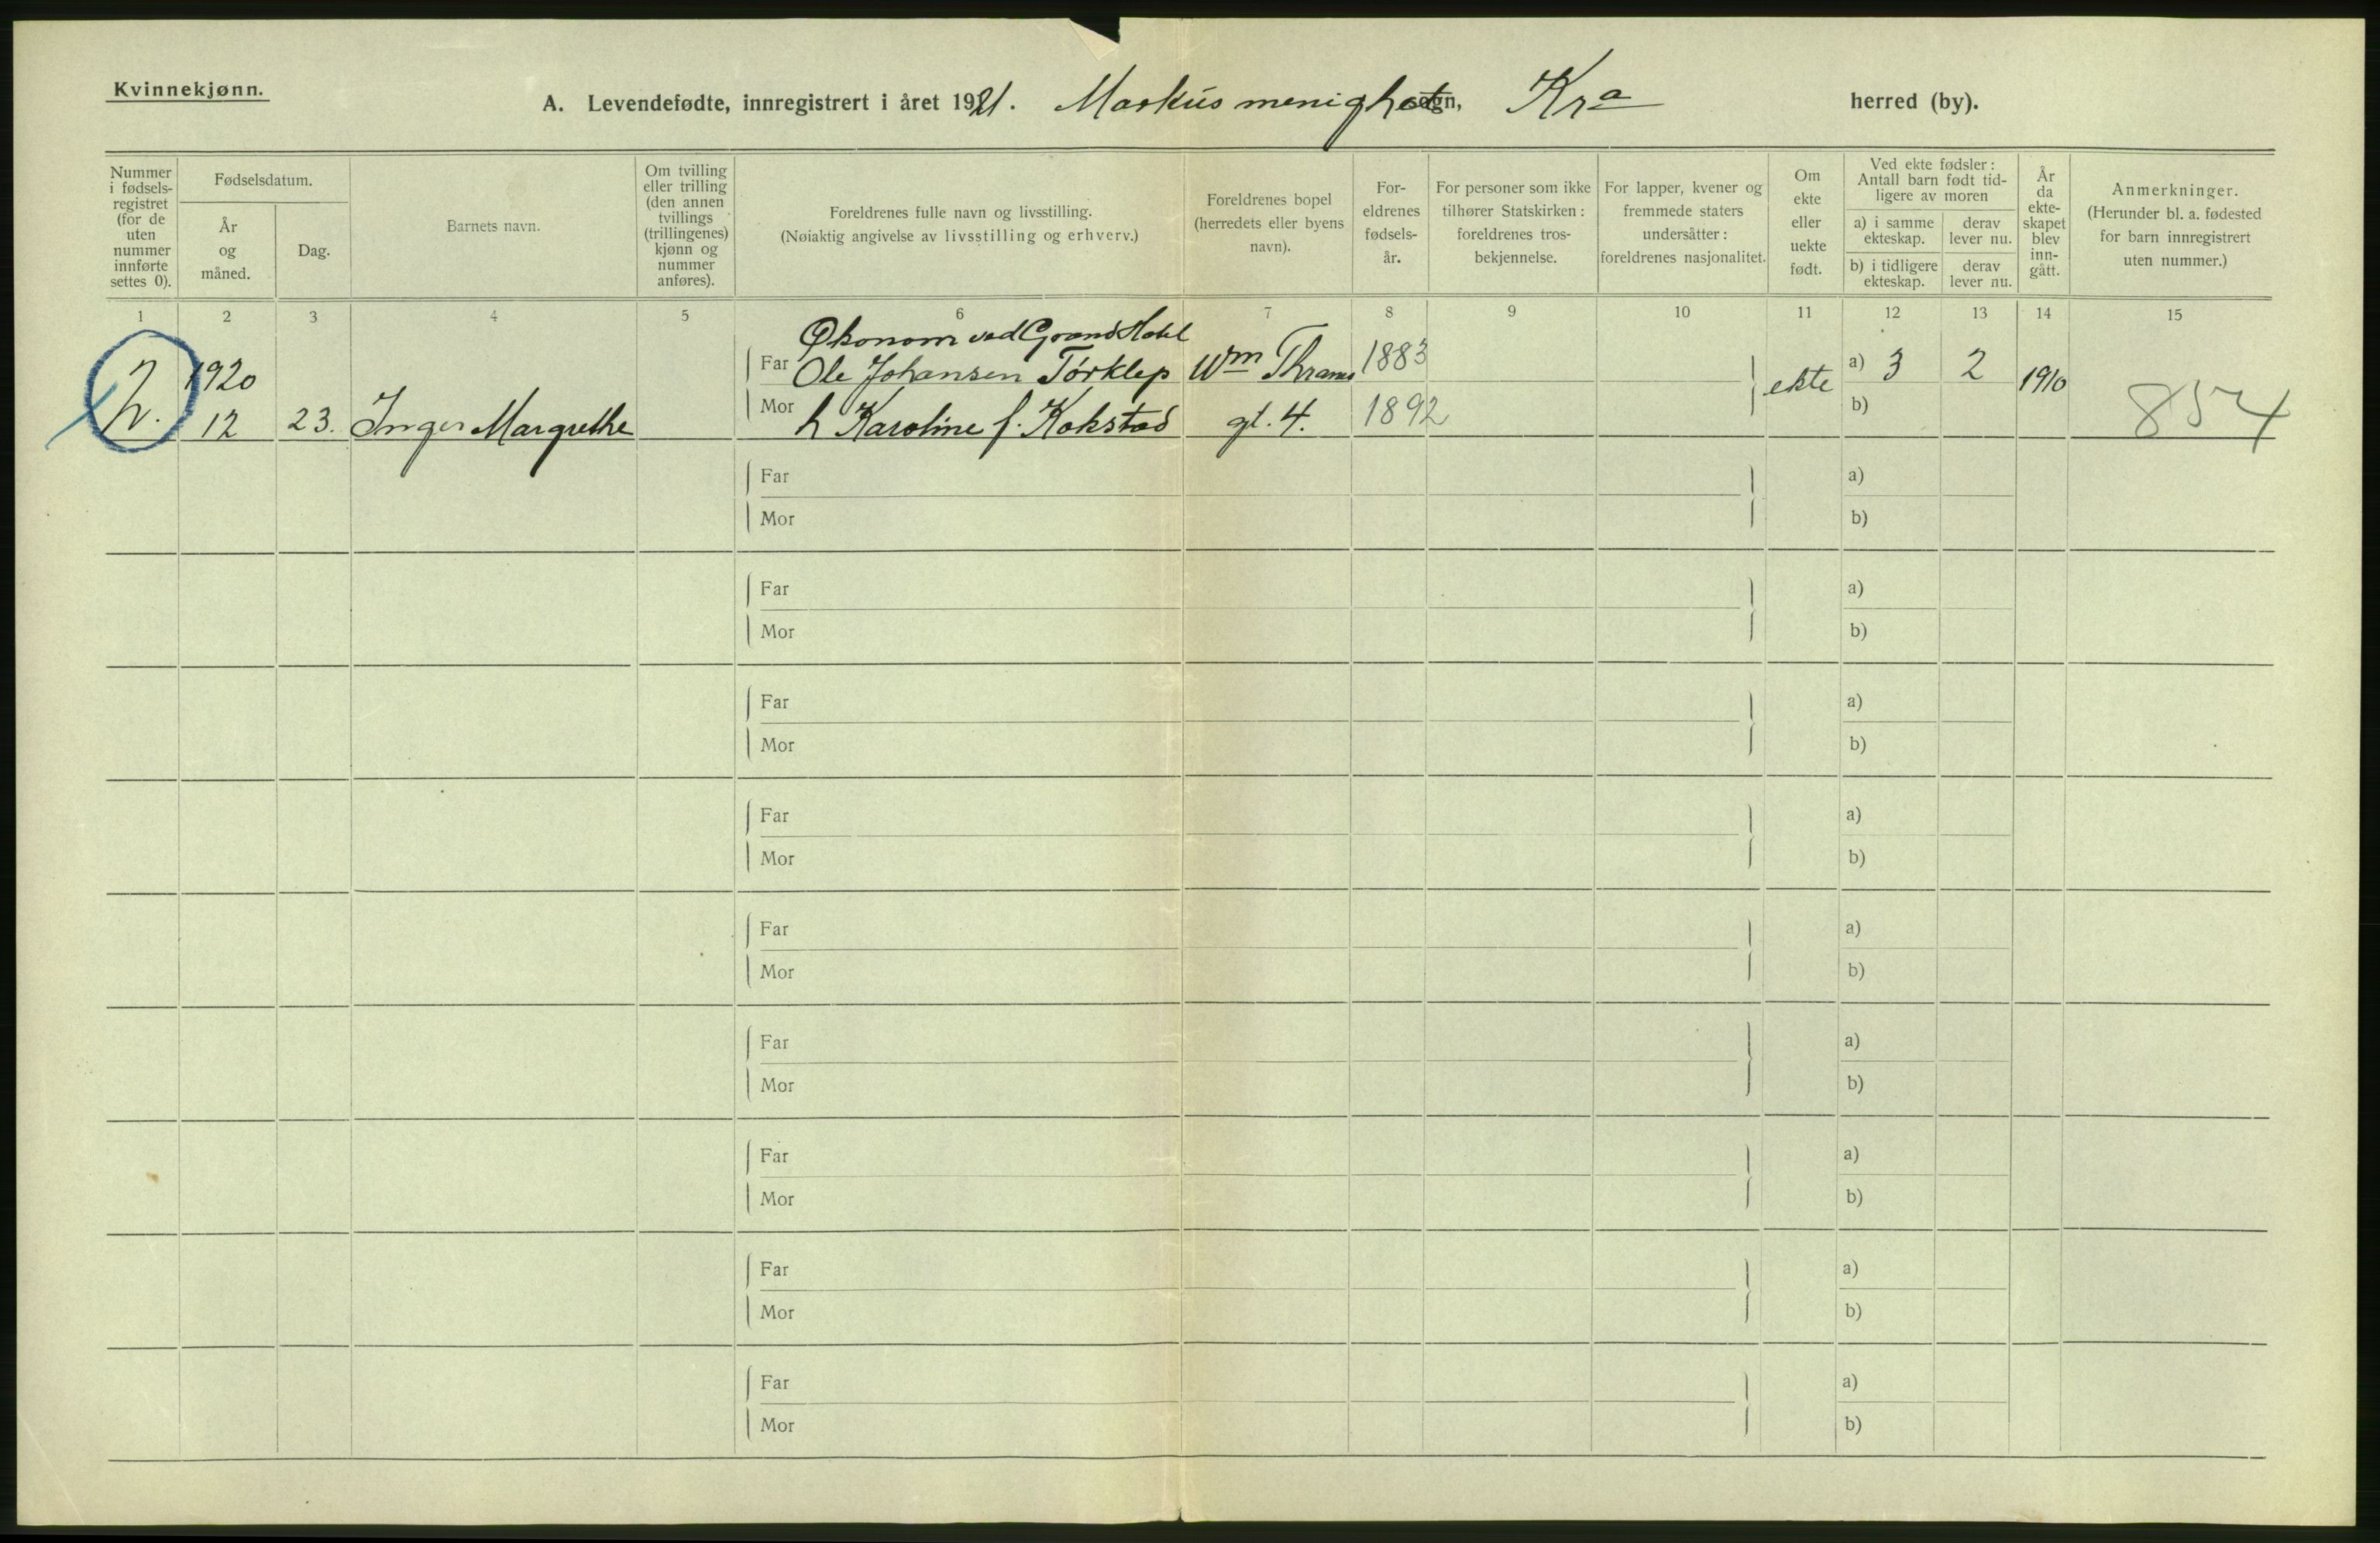 Kvinnekjønn.
A. Levendefødte, innregistrert i året 1921. Markus menighet sogn, Kra herred (by).
Nummer i fødsels-registret (for de uten nummer innførte settes 0).
Fødselsdatum.
År og måned.
Dag.
Barnets navn.
Om tvilling eller trilling (den annen tvillings (trillingenes) kjønn og nummer anføres).
Foreldrenes fulle navn og livsstilling.
(Nøiaktig angivelse av livsstilling og erhverv.)
Foreldrenes bopel (herredets eller byens navn).
For-eldrenes fødsels-år.
For personer som ikke tilhører Statskirken: foreldrenes tros-bekjennelse.
For lapper, kvener og fremmede staters undersåtter: foreldrenes nasjonalitet.
Om ekte eller uekte født.
Ved ekte fødsler: Antall barn født tid-ligere av moren
a) i samme ekteskap.
derav lever nu.
b) i tidligere ekteskap.
derav lever nu.
År da ekte-skapet blev inn-gått.
Anmerkninger.
(Herunder bl. a. fødested for barn innregistrert uten nummer.)
1 2 3 4 5 6 7 8 9 10 11 12 13 14 15
Økonom ved Grand Hotel
1920 Far Ole Johansen Tørklep Wm Thranes 1883 ekte a) 3 2 1910
2. 12 23. Inger Margrethe Mor h Karoline f. Kokstad gt. 4. 1892 b) 854
Far a)
Mor b)
Far a)
Mor b)
Far a)
Mor b)
Far a)
Mor b)
Far a)
Mor b)
Far a)
Mor b)
Far a)
Mor b)
Far a)
Mor b)
Far a)
Mor b)